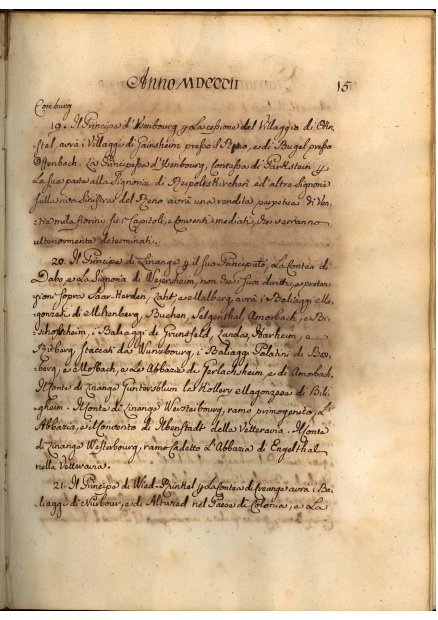 Anno MDCCCII 15
Comburg
19. Il Principe d'Isenbourg p La cessione del Villaggio di
stel, avrà i Villaggi di Gainsheim presso il Reno, e di Burgel presso
Offenbach. La Principessa d'Isenbourg, Contessa di Parkstein p
La sua parte alla Signoria di Reipoltskirchen ed altre Signorie
sulla riva sinistra del Reno avrà una rendita perpetua di Ven-
ti tre mila fiorini su i Capitoli, e Conventi mediati, che verranno
ulteriormente determinati.
20. Il Principe di Linange p il suo Principato, La Contea di
Dabo, e La Signoria di Weijersheim, non che i suoi diritti, e preten-
zioni sopra Saar-Werden, Laht, e Malberg, avrà i Baliaggi Ma-
gonzesi di Miltenberg, Buchen, Seligenthal, Amorbach, e Bi-
shofsheim, i Baliaggi di Grunsfeld, Lauda, Harheim, e
Ritberg, staccati da Wurzbourg, i Baliaggi Palatini di Box-
berg, e Mosbach, e Le Abbazie di Gerlachsheim, e di Amorbach.
Il Conte di Linange Guntersblum La Kellery Magonzese di Bili-
gheim. Il Conte di Linange Westerbourg, ramo primogenito, L'
Abbazia, e il Convento di Ilbenstadt della Vetteravia. Il Conte
di Linange Westerbourg, ramo Cadetto L'Abbazia di Engelthal
nella Vetteravia.
21. Il Principe di Wied-Runkel p La Contea di avrà i Ba-
liaggi di Nurbour, e di Altwied nel Paese di Colonia, e La